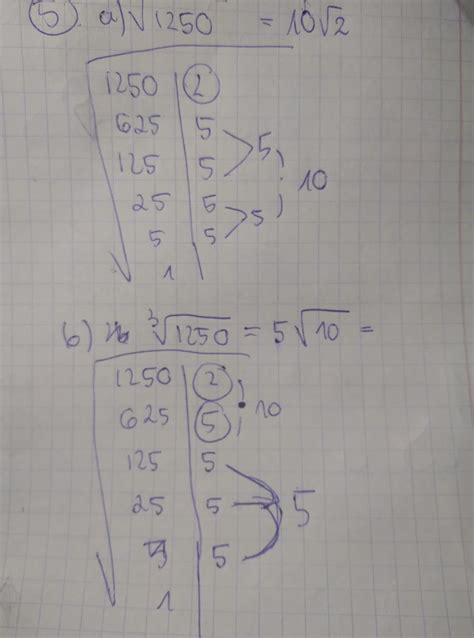 5. a) √1250 = 10√2
1250 | 2
625 | 5
125 | 5 > 5
25 | 5
5 | 5 > 5
1
10
b) ³√1250 = 5√10 =
1250 | 2
625 | 5
10
125 | 5
25 | 5
5 | 5
1
5